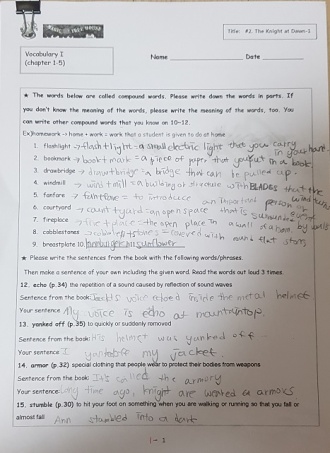 Title: #2. The Knight at Dawn-1
Vocabulary I
(chapter 1-5)
Name Date
★ The words below are called compound words. Please write down the words in parts. If
you don't know the meaning of the words, please write the meaning of the words, too. You
can write other compound words that you know on 10-12.
Ex)homework → home + work = work that a student is given to do at home
1. flashlight → flash+light = a small electric light that you carry in your hand.
2. bookmark → book+mark = a piece of paper that you put in a book.
3. drawbridge → draw+bridge = a bridge that can be pulled up.
4. windmill → wind+mill = a building or structure with BLADES that the wind turns
5. fanfare → = to introduce an important person or event
6. courtyard → court+yard = an open space that is surrounded by walls
7. fireplace → fire+place = the open place in a wall of a room
8. cobblestones → = covered with round flat stone
9. breastplate 10. sunflower
★ Please write the sentences from the book with the following words/phrases.
Then make a sentence of your own including the given word. Read the words out loud 3 times.
12. echo (p.34) the repetition of a sound caused by reflection of sound waves
Sentence from the book: Jack's voice echoed inside the metal helmet
Your sentence My voice is echo at mountaintop.
13. yanked off (p.35) to quickly or suddenly removed
Sentence from the book: His helmet was yanked off.
Your sentence I my jacket
14. armor (p.32) special clothing that people wear to protect their bodies from weapons
Sentence from the book: It's called the armory
Your sentence: Long time ago, knight are armors
15. stumble (p.30) to hit your foot on something when you are walking or running so that you fall or
almost fall Ann stumbled into a dark
1- 1